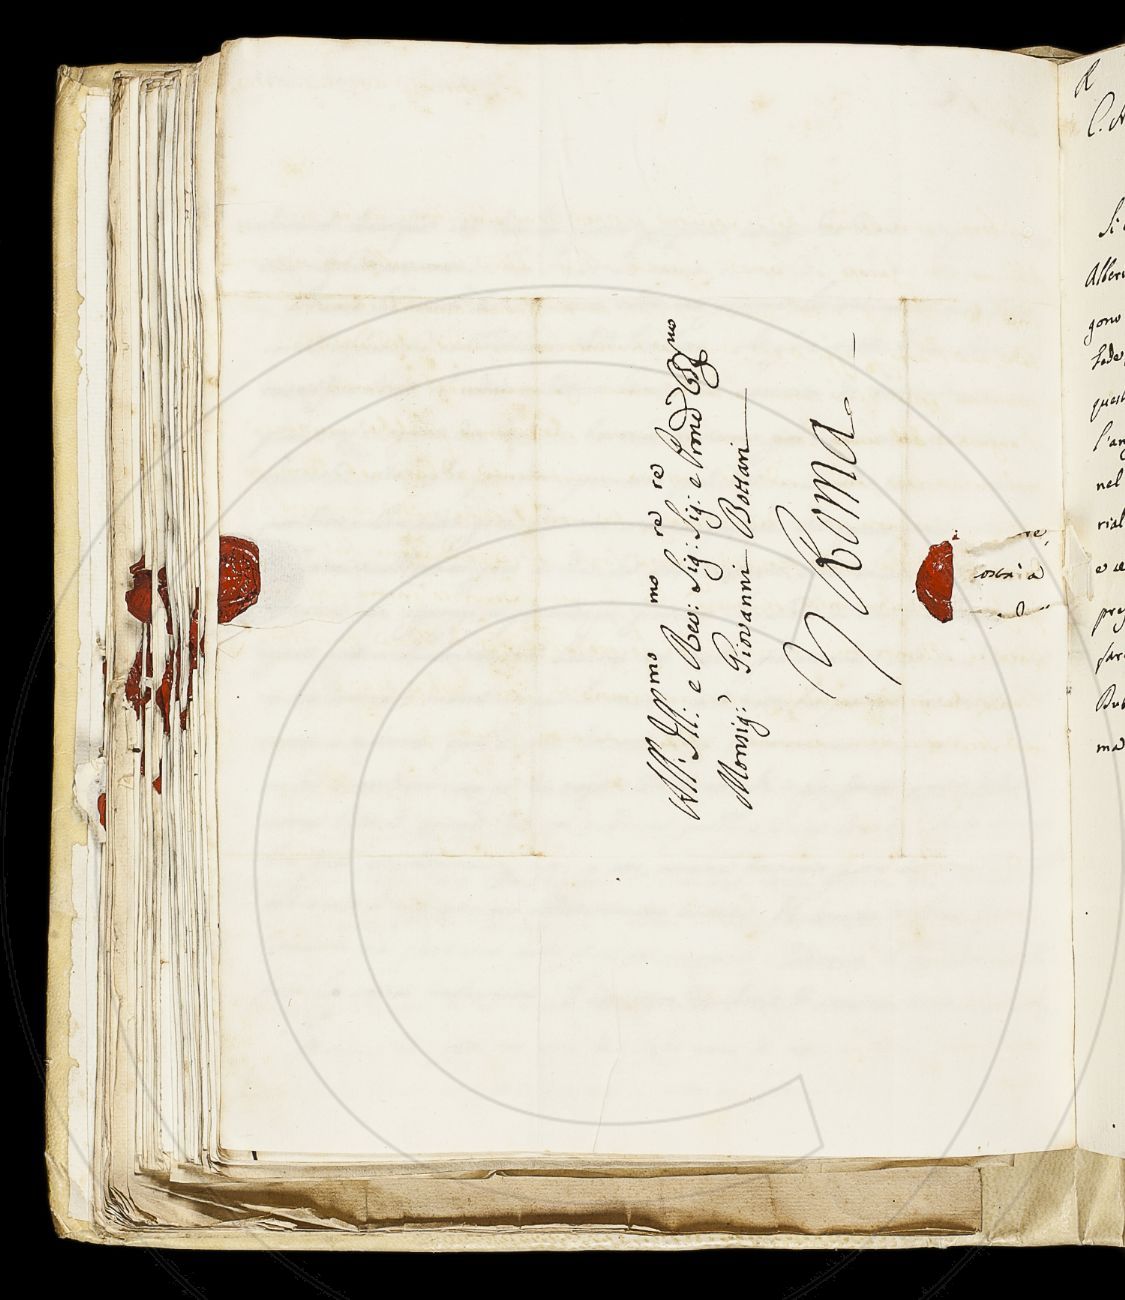 All' Ill.mo e Rev:mo Sig:re Sig:re e Pron Col.mo
Monsig:r Giovanni Bottari
Roma
ostria
R
C. A
Si
Alber
gono
fede
quest
l'an
nel
rial
e
preg
far
ma